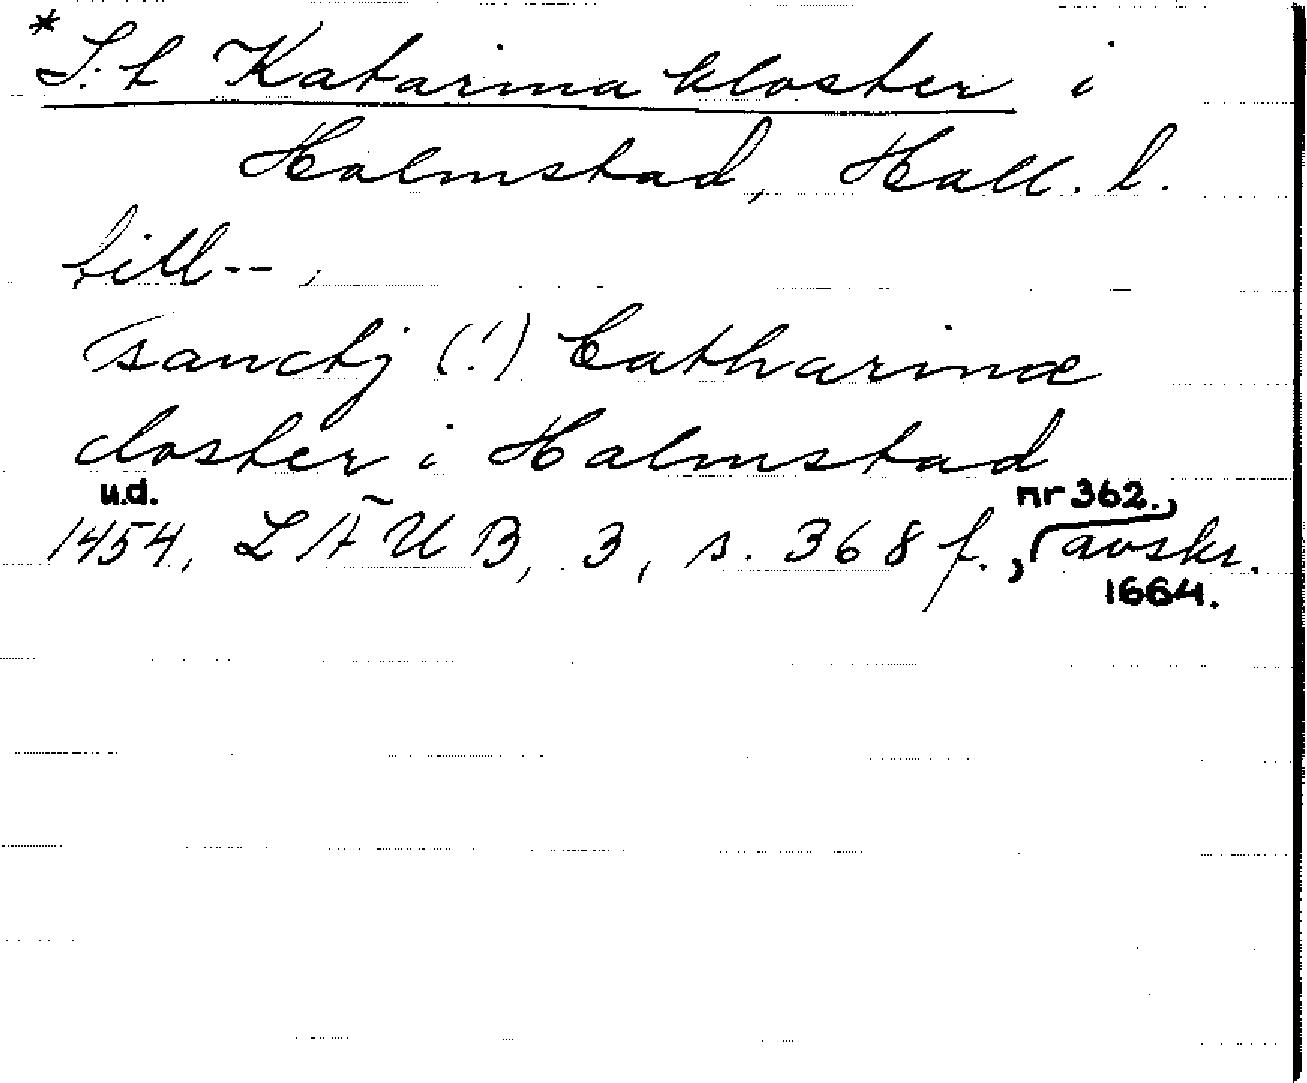 *S:t Katarina kloster i
Halmstad, Hall. l.
till --,
sanctj (!) Catharinæ
closter i Halmstad
u.d. nr 362.,
1454, LÄUB, 3, s. 368 f., avskr.
1664.